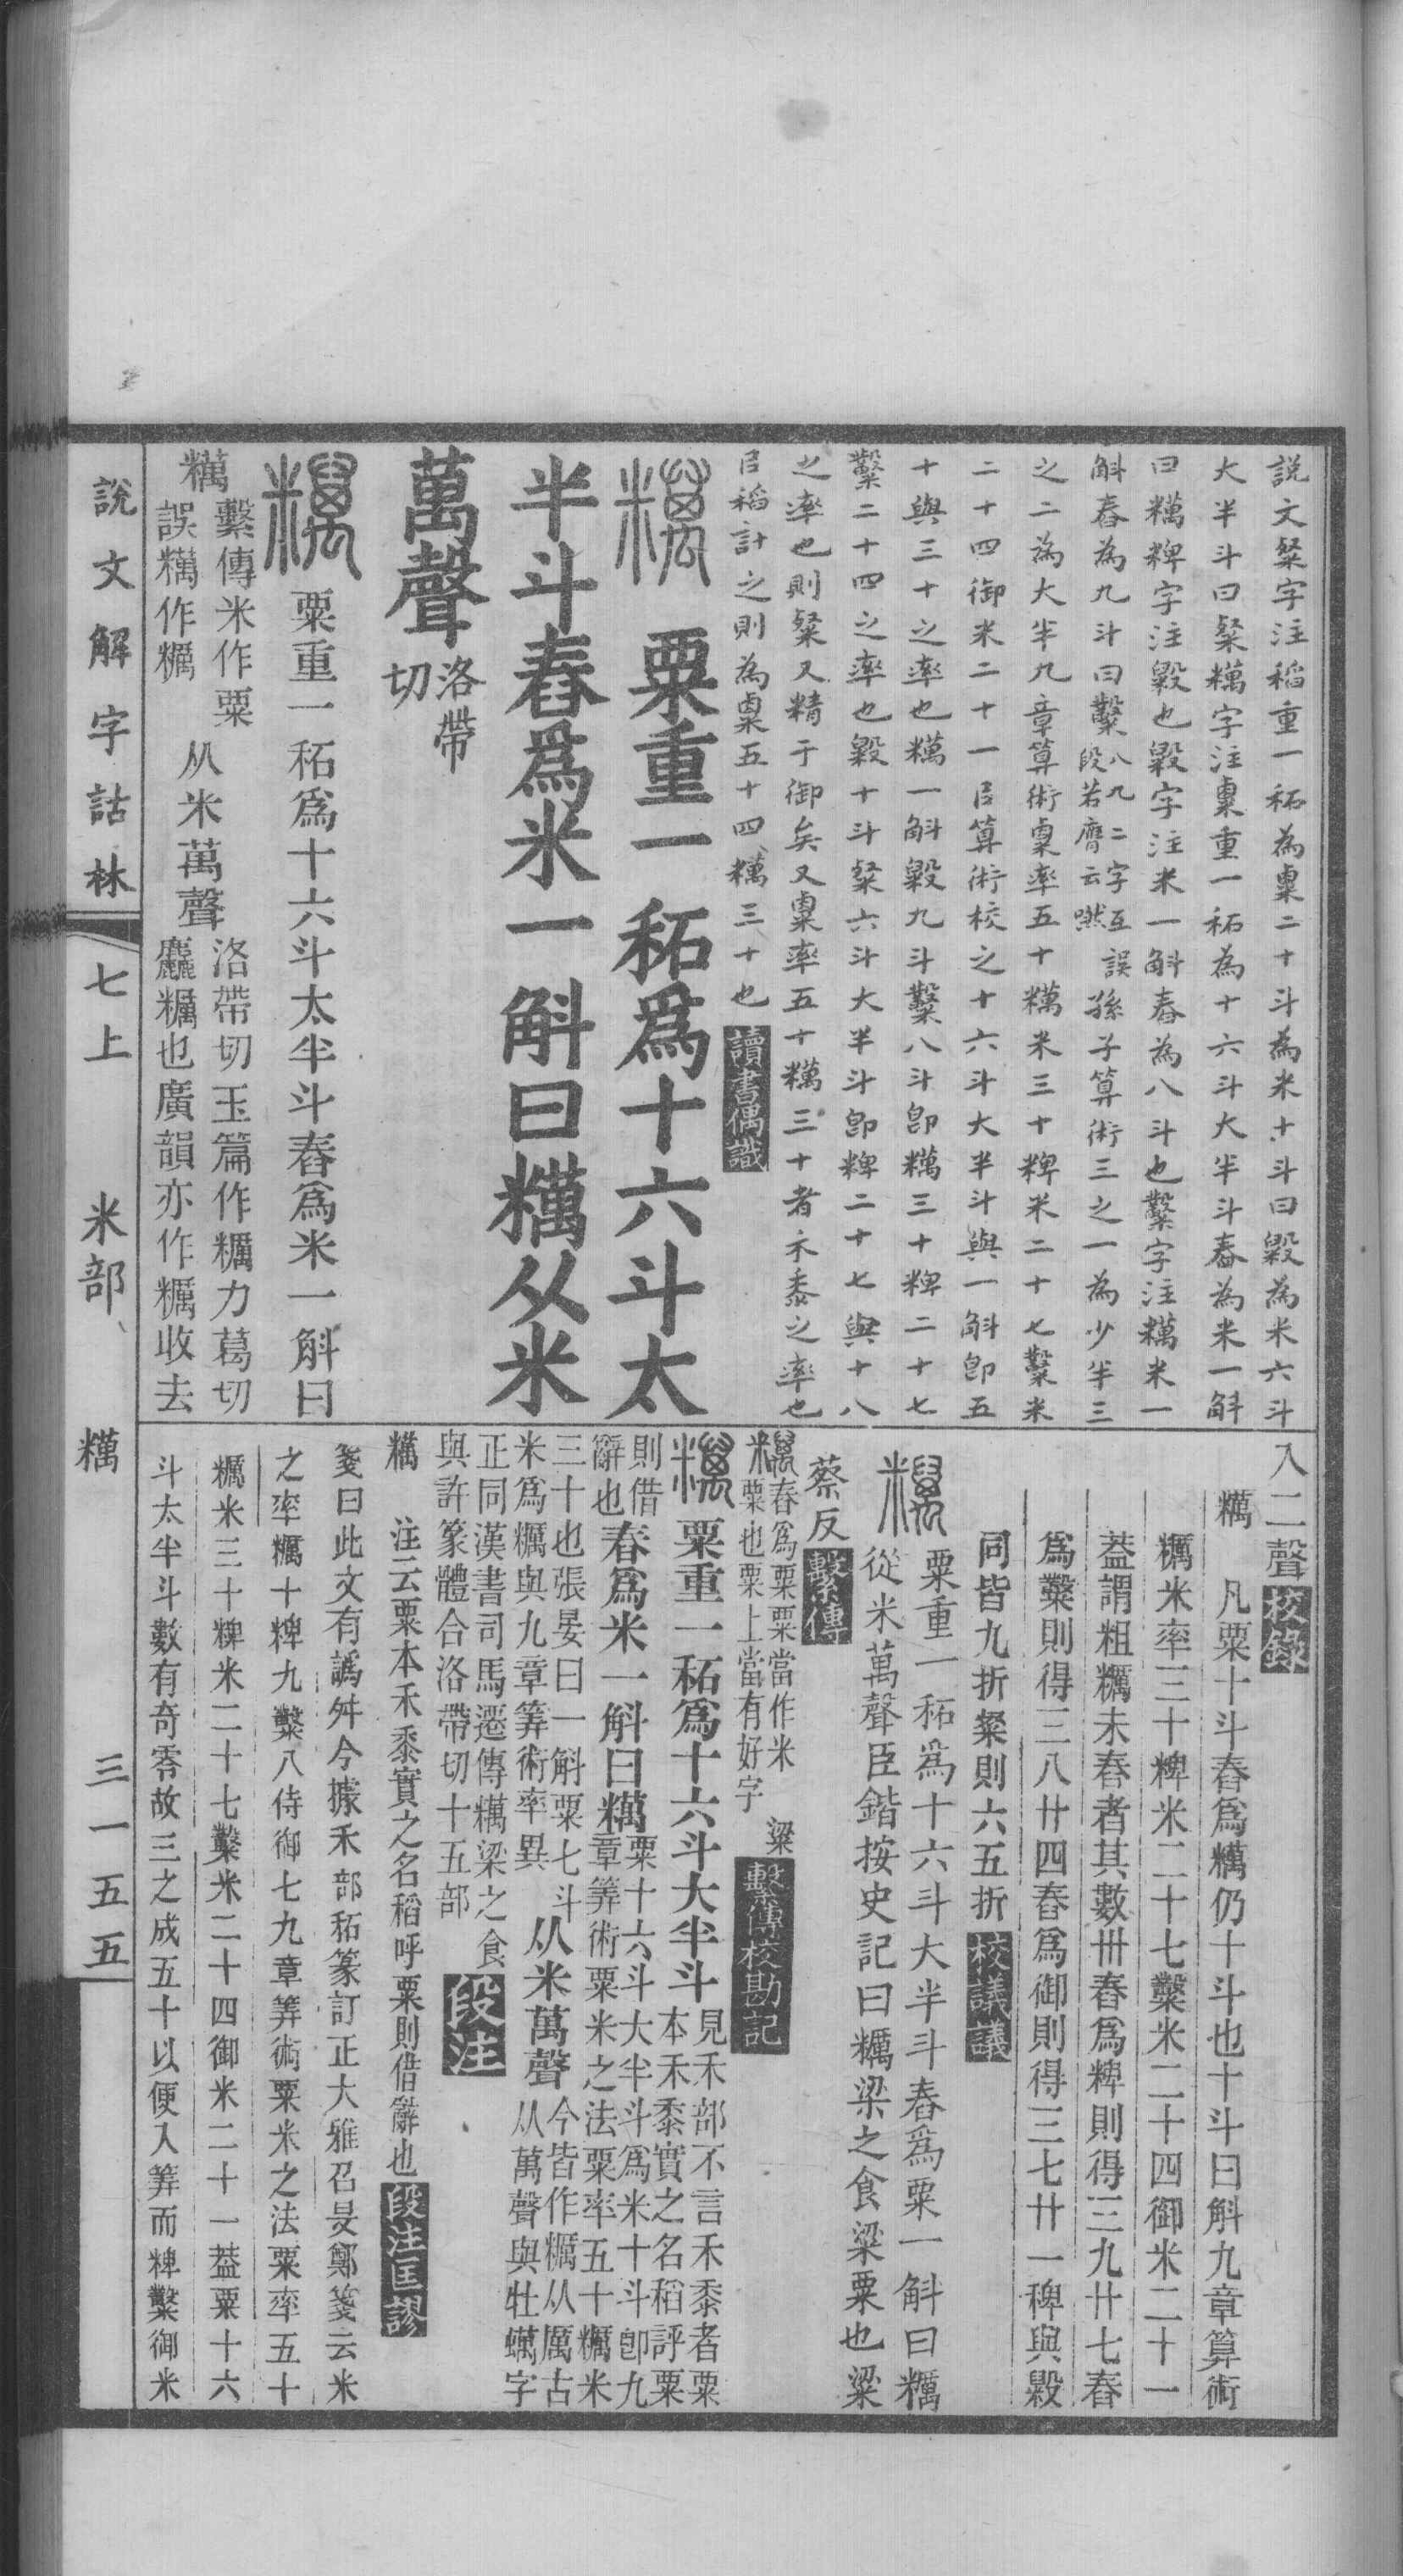 説文粲字注稻重一䄷為粟二十斗為米十斗曰毇為米六斗
大半斗曰粲䊪字注粟重一䄷為十六斗大半斗舂為米一斛
曰䊪粺字注毇也毇字注米一斛舂為八斗也糳字注䊪米一
斛舂為九斗曰糳八九二字互誤段若膺云嘫孫子算術三之一為少半三
之二為大半九章算術粟率五十䊪米三十粺米二十七糳米
二十四御米二十一㠯算術校之十六斗大半斗與一斛卽五
十與三十之率也䊪一斛毇九斗糳八斗卽䊪三十粺二十七
糳二十四之率也毇十斗粲六斗大半斗卽粺二十七與十八
之率也則粲又精于御矣又粟率五十䊪三十者禾黍之率也
㠯稻計之則為粟五十四䊪三十也讀書偶識
䊪 粟重一䄷爲十六斗太
半斗舂爲米一斛曰䊪从米
萬聲洛帶切
䊪粟重一䄷爲十六斗太半斗舂爲米一斛曰
䊪繫傳米作粟誤䊪作糲从米萬聲洛帶切玉篇作糲力葛切麤糲也廣韻亦作糲收去
入二聲校錄
䊪 凡粟十斗舂爲䊪仍十斗也十斗曰斛九章算術
糲米率三十粺米二十七糳米二十四御米二十一
葢謂粗糲未舂者其數卅舂爲粺則得三九廿七舂
爲糳則得三八廿四舂爲御則得三七廿一稗與毇
同皆九折粲則六五折校議議
䊪粟重一䄷爲十六斗大半斗舂爲粟一斛曰糲
從米萬聲臣鍇按史記曰糲梁之食粱粟也粱
蔡反繫傳
䊪舂爲粟粟當作米 粱粟也粟上當有好字繫傳校勘記
䊪粟重一䄷爲十六斗大半斗見禾部不言禾黍者粟本禾黍實之名稻評粟
則借辭也舂爲米一斛曰䊪粟十六斗大半斗爲米十斗卽九章筭術粟米之法粟率五十糲米
三十也張晏曰一斛粟七斗米爲糲與九章筭術率異从米萬聲今皆作糲从厲古从萬聲與牡蠣字
正同漢書司馬遷傳䊪梁之食與許篆體合洛帶切十五部段注
䊪 注云粟本禾黍實之名稻呼粟則借辭也段注匡謬
箋曰此文有譌舛今據禾部䄷篆訂正大雅召旻鄭箋云米
之率糲十粺九糳八侍御七九章筭術粟米之法粟率五十
糲米三十粺米二十七糳米二十四御米二十一葢粟十六
斗太半斗數有奇零故三之成五十以便入筭而粺糳御米
說文解字詁林 七上 米部 䊪 三一五五